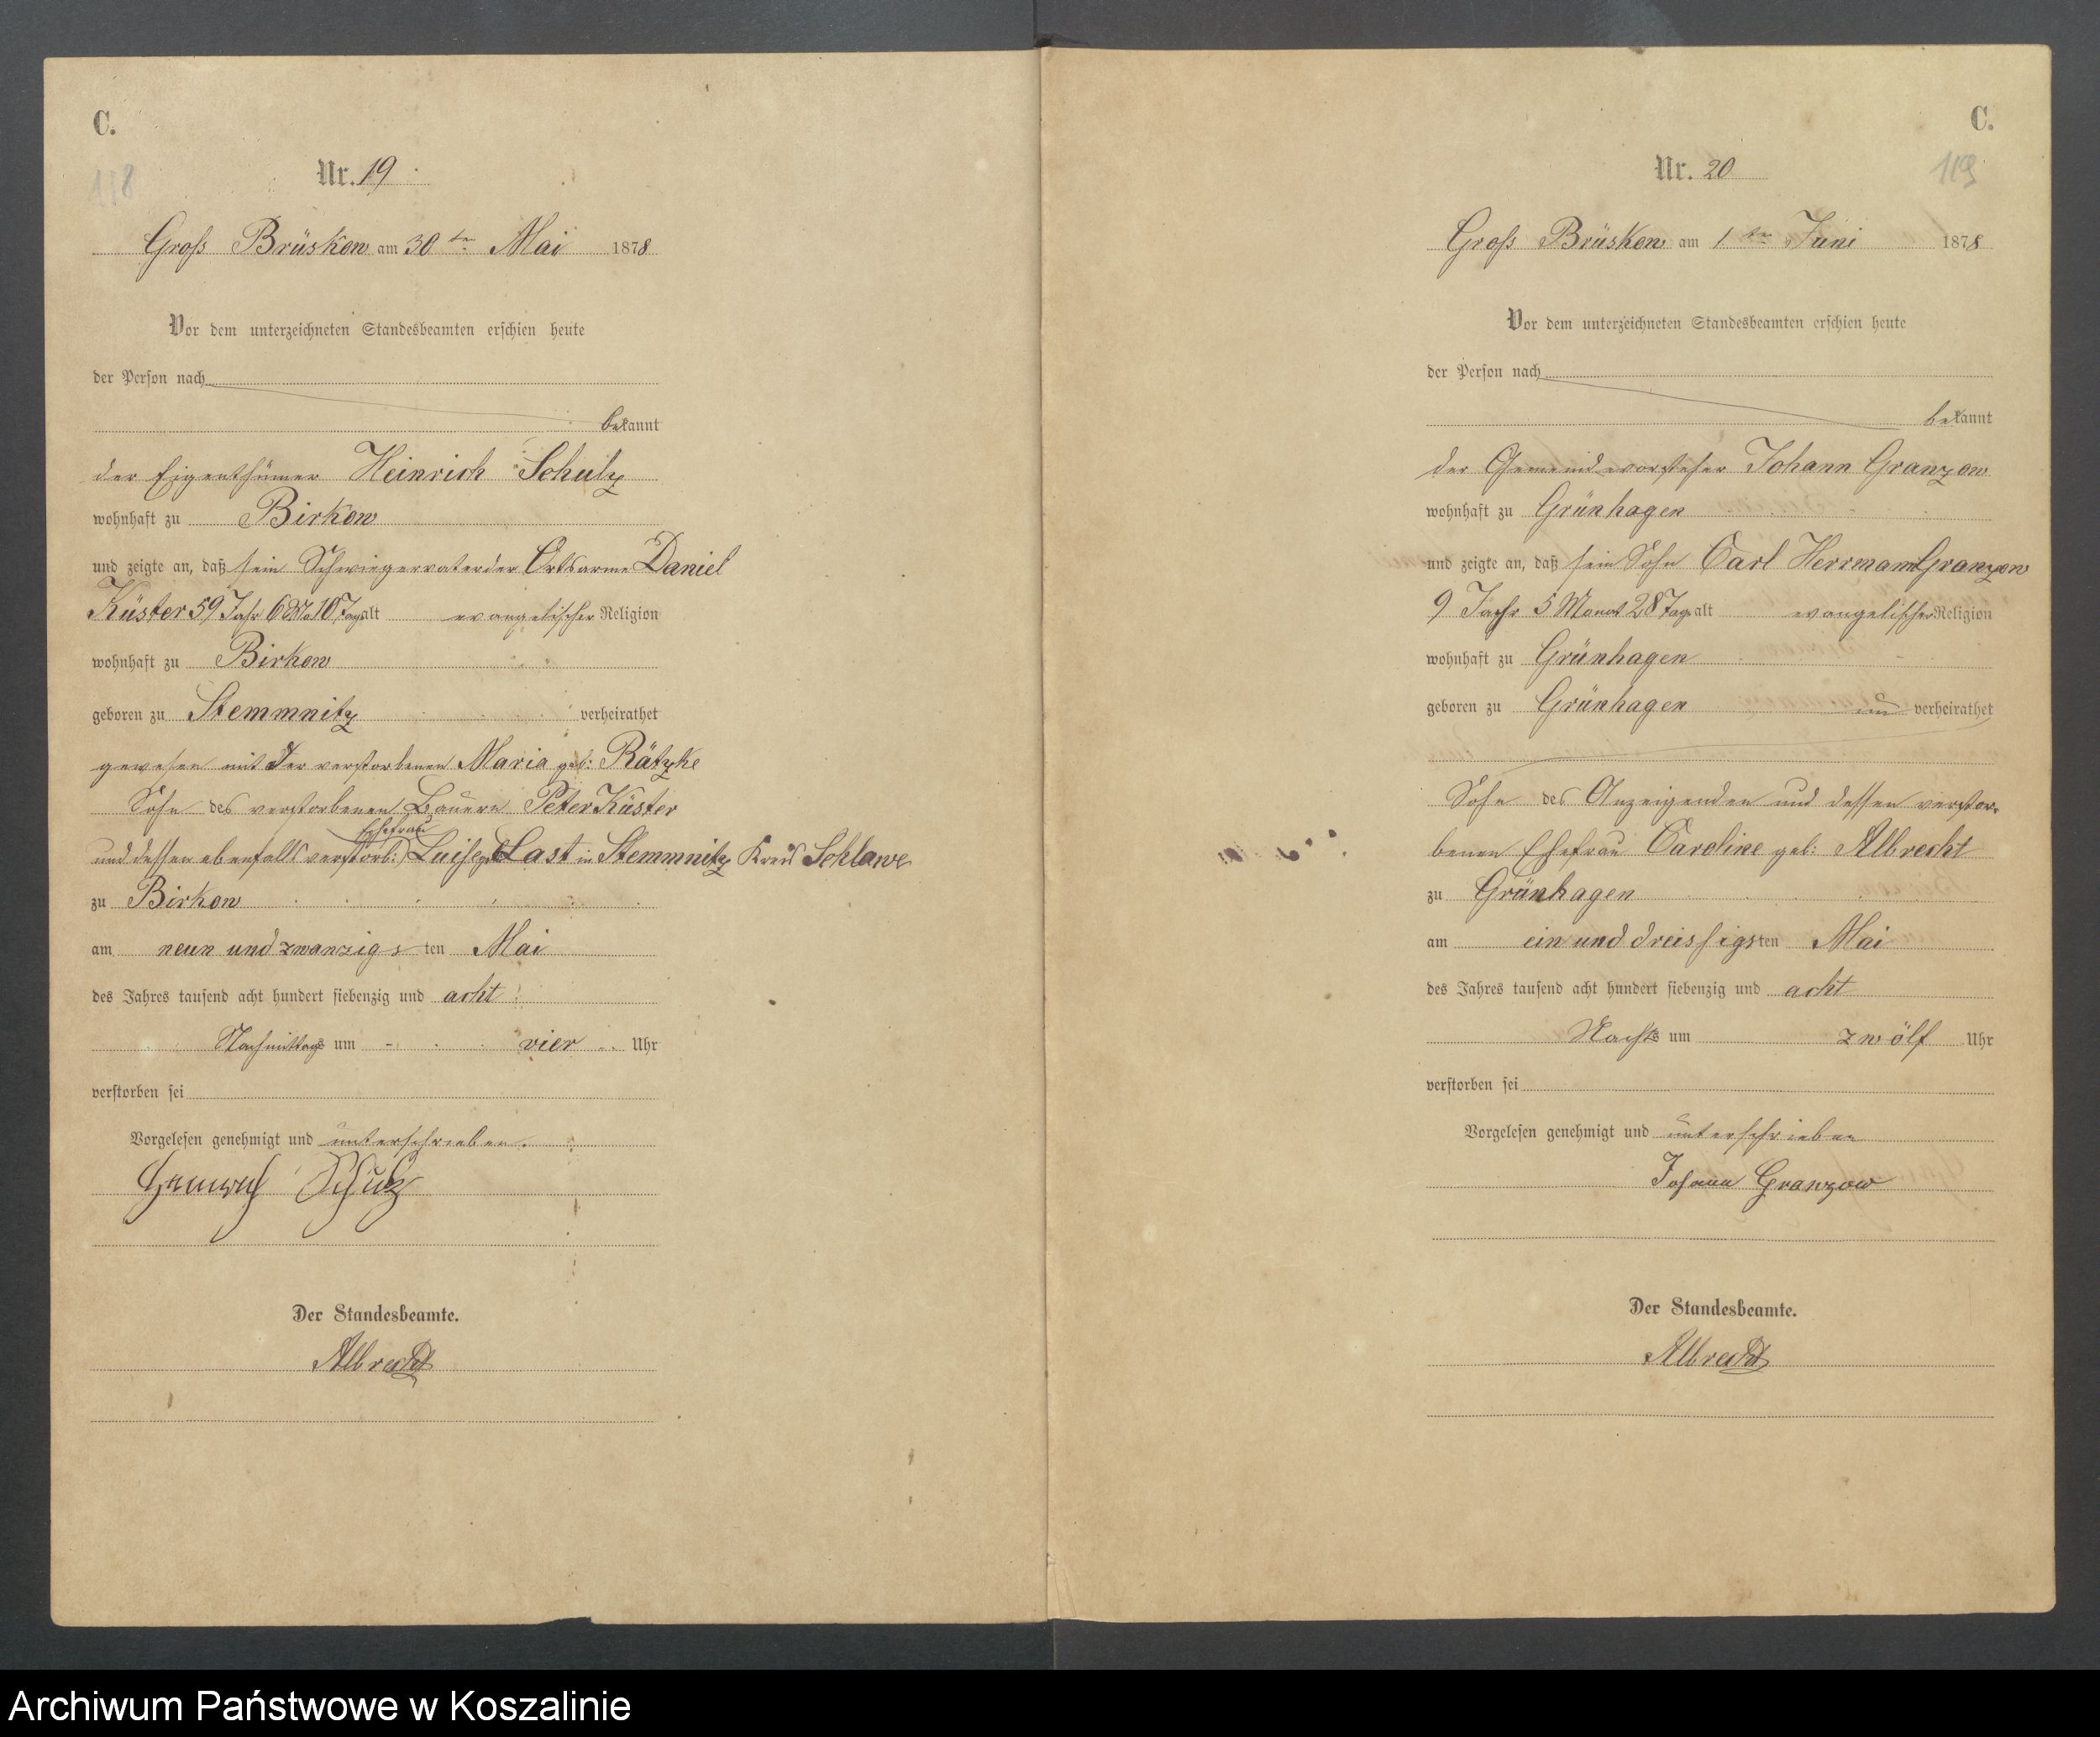 C.
118
Nr. 19
Groß Brüskow am 30ten Mai 1878
Vor dem unterzeichneten Standesbeamten erschien heute
der Person nach
bekannt
der Eigenthümer Heinrich Schulz
wohnhaft zu Birkow
und zeigte an, daß sein Schwiegervater der Ortsarme Daniel
Küster 59 Jahr 6 Mo 10 Tage alt evangelischer Religion
wohnhaft zu Birkow
geboren zu Stemmnitz verheirathet
gewesen mit der verstorbenen Maria geb: Rätzke
Sohn des verstorbenen Bauern Peter Küster
Ehefrau
und dessen ebenfalls verstorb: Luise geb Last in Stemmnitz Kreis Schlawe
zu Birkow
am neun und zwanzigsten Mai
des Jahres tausend acht hundert siebenzig und acht
Nachmittags um vier Uhr
verstorben sei
Vorgelesen genehmigt und unterschrieben.
Heinrich Schulz
Der Standesbeamte.
Albrecht
C.
119
Nr. 20
Groß Brüskow am 1ten Juni 1878
Vor dem unterzeichneten Standesbeamten erschien heute
der Person nach
bekannt
der Gemeindevorsteher Johann Granzow
wohnhaft zu Grünhagen
und zeigte an, daß sein Sohn Carl Herrmann Granzow
9 Jahr 5 Monat 28 Tage alt evangelischer Religion
wohnhaft zu Grünhagen
geboren zu Grünhagen un verheirathet
Sohn des Anzeigenden und dessen verstor-
benen Ehefrau Caroline geb: Albrecht
zu Grünhagen
am ein und dreissigsten Mai
des Jahres tausend acht hundert siebenzig und acht
Nachts um zwölf Uhr
verstorben sei
Vorgelesen genehmigt und unterschrieben
Johann Granzow
Der Standesbeamte.
Albrecht
Archiwum Państwowe w Koszalinie